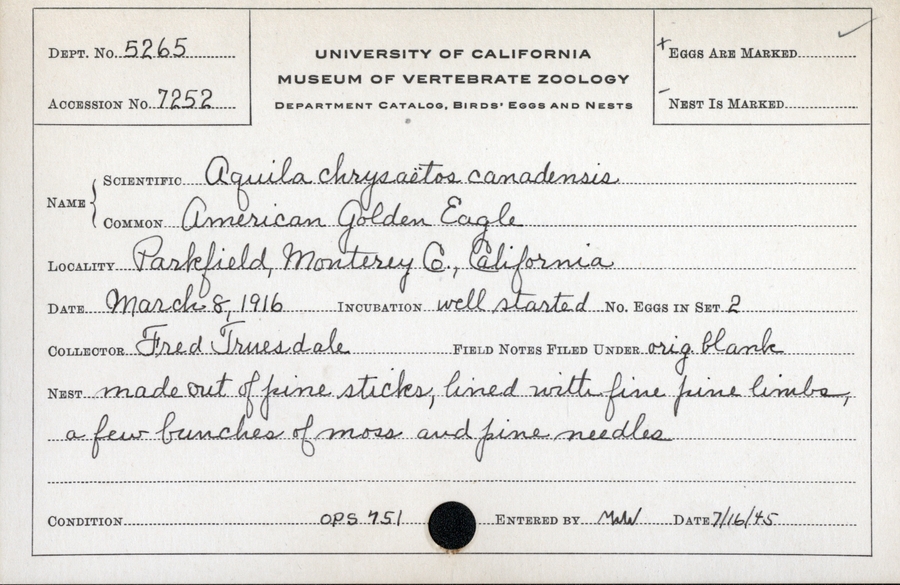 DEPT. No. 5265
ACCESSION No. 7252
UNIVERSITY OF CALIFORNIA
MUSEUM OF VERTEBRATE ZOOLOGY
DEPARTMENT CATALOG, BIRDS' EGGS AND NESTS
+ EGGS ARE MARKED
- NEST IS MARKED
NAME
SCIENTIFIC Aquila chrysaëtos canadensis
COMMON American Golden Eagle
LOCALITY Parkfield, Monterey C., California
DATE March 8, 1916 INCUBATION well started No. EGGS IN SET 2
COLLECTOR Fred Truesdale FIELD NOTES FILED UNDER orig. blank
NEST made out of pine sticks, lined with fine pine limbs,
a few bunches of moss and pine needles
CONDITION OPS 751 ENTERED BY DATE 7/16/45